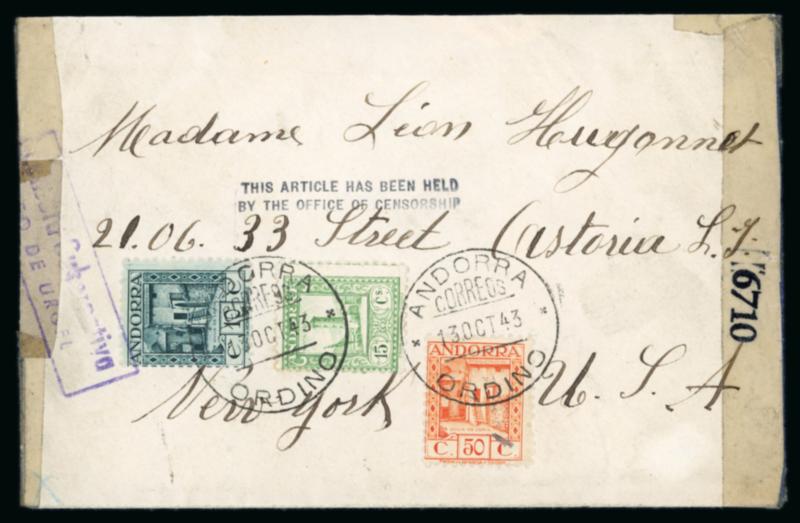 Madame Léon Hugonnet
THIS ARTICLE HAS BEEN HELD
BY THE OFFICE OF CENSORSHIP
21.06. 33 Street Astoria L.I.
New York U.S.A
ANDORRA
CORREOS
13 OCT 43
ORDINO
ANDORRA
CORREOS
13 OCT 43
ORDINO
ANDORRA
10
Cs
15
ANDORRA
C. 50 C.
6710
DE URGEL